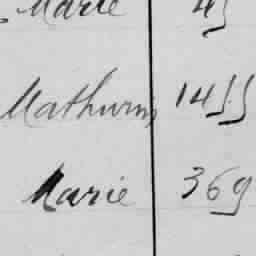 Marie 45
Mathurin 1455
Marie 369